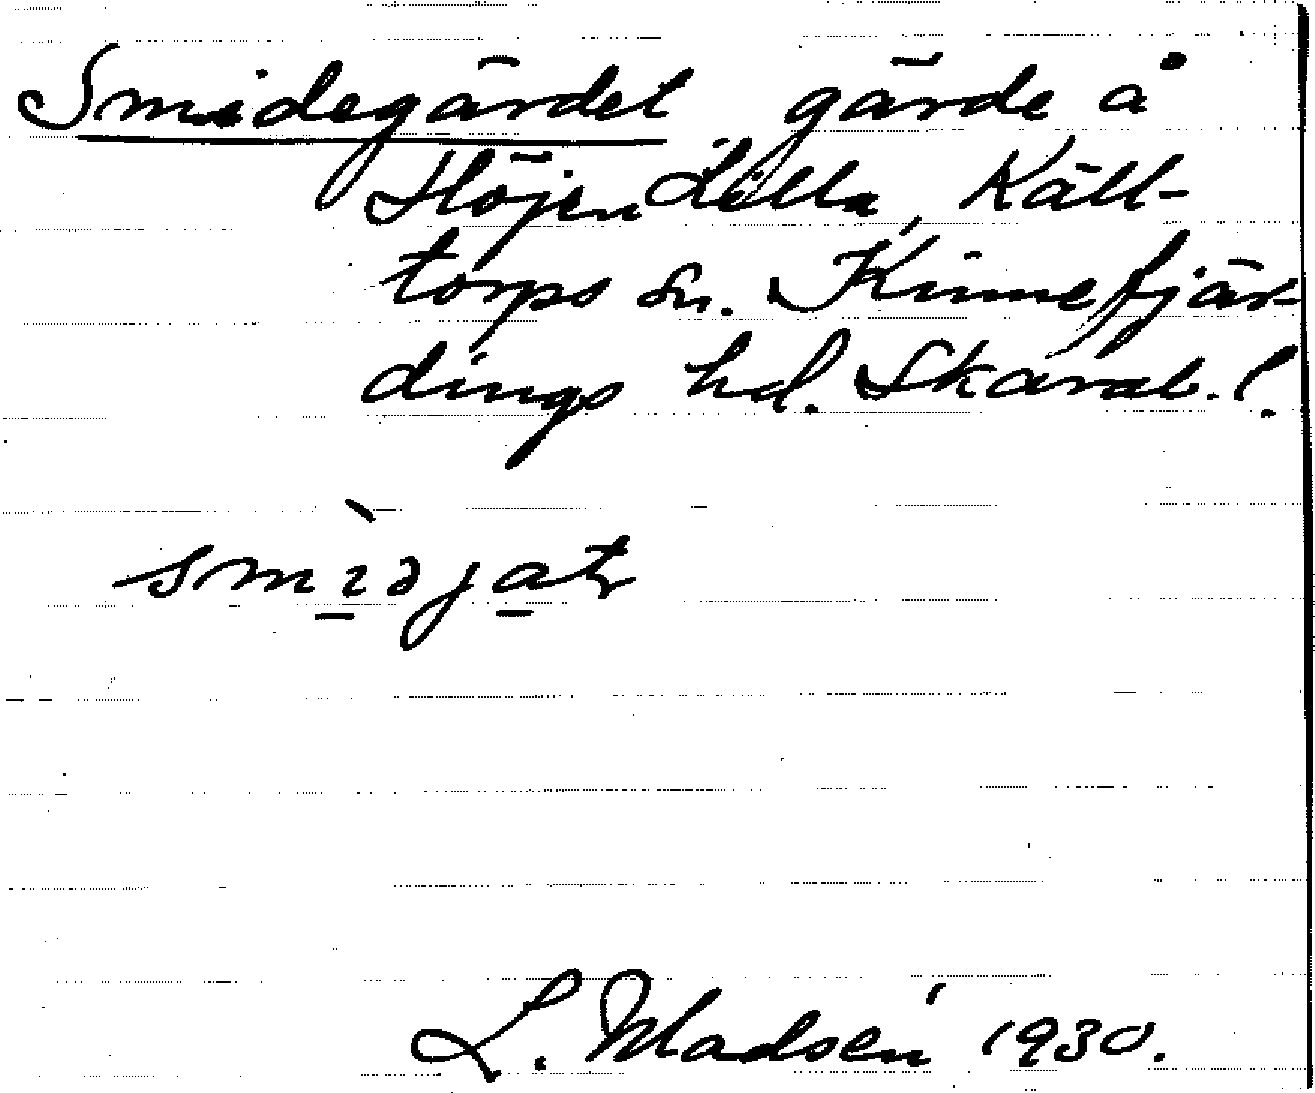 Smidegärdet gärde å
Höjen Lilla, Käll-
torps sn. Kinnefjär-
dings hd. Skarab. l.
smìdjat
L. Madsén 1930.